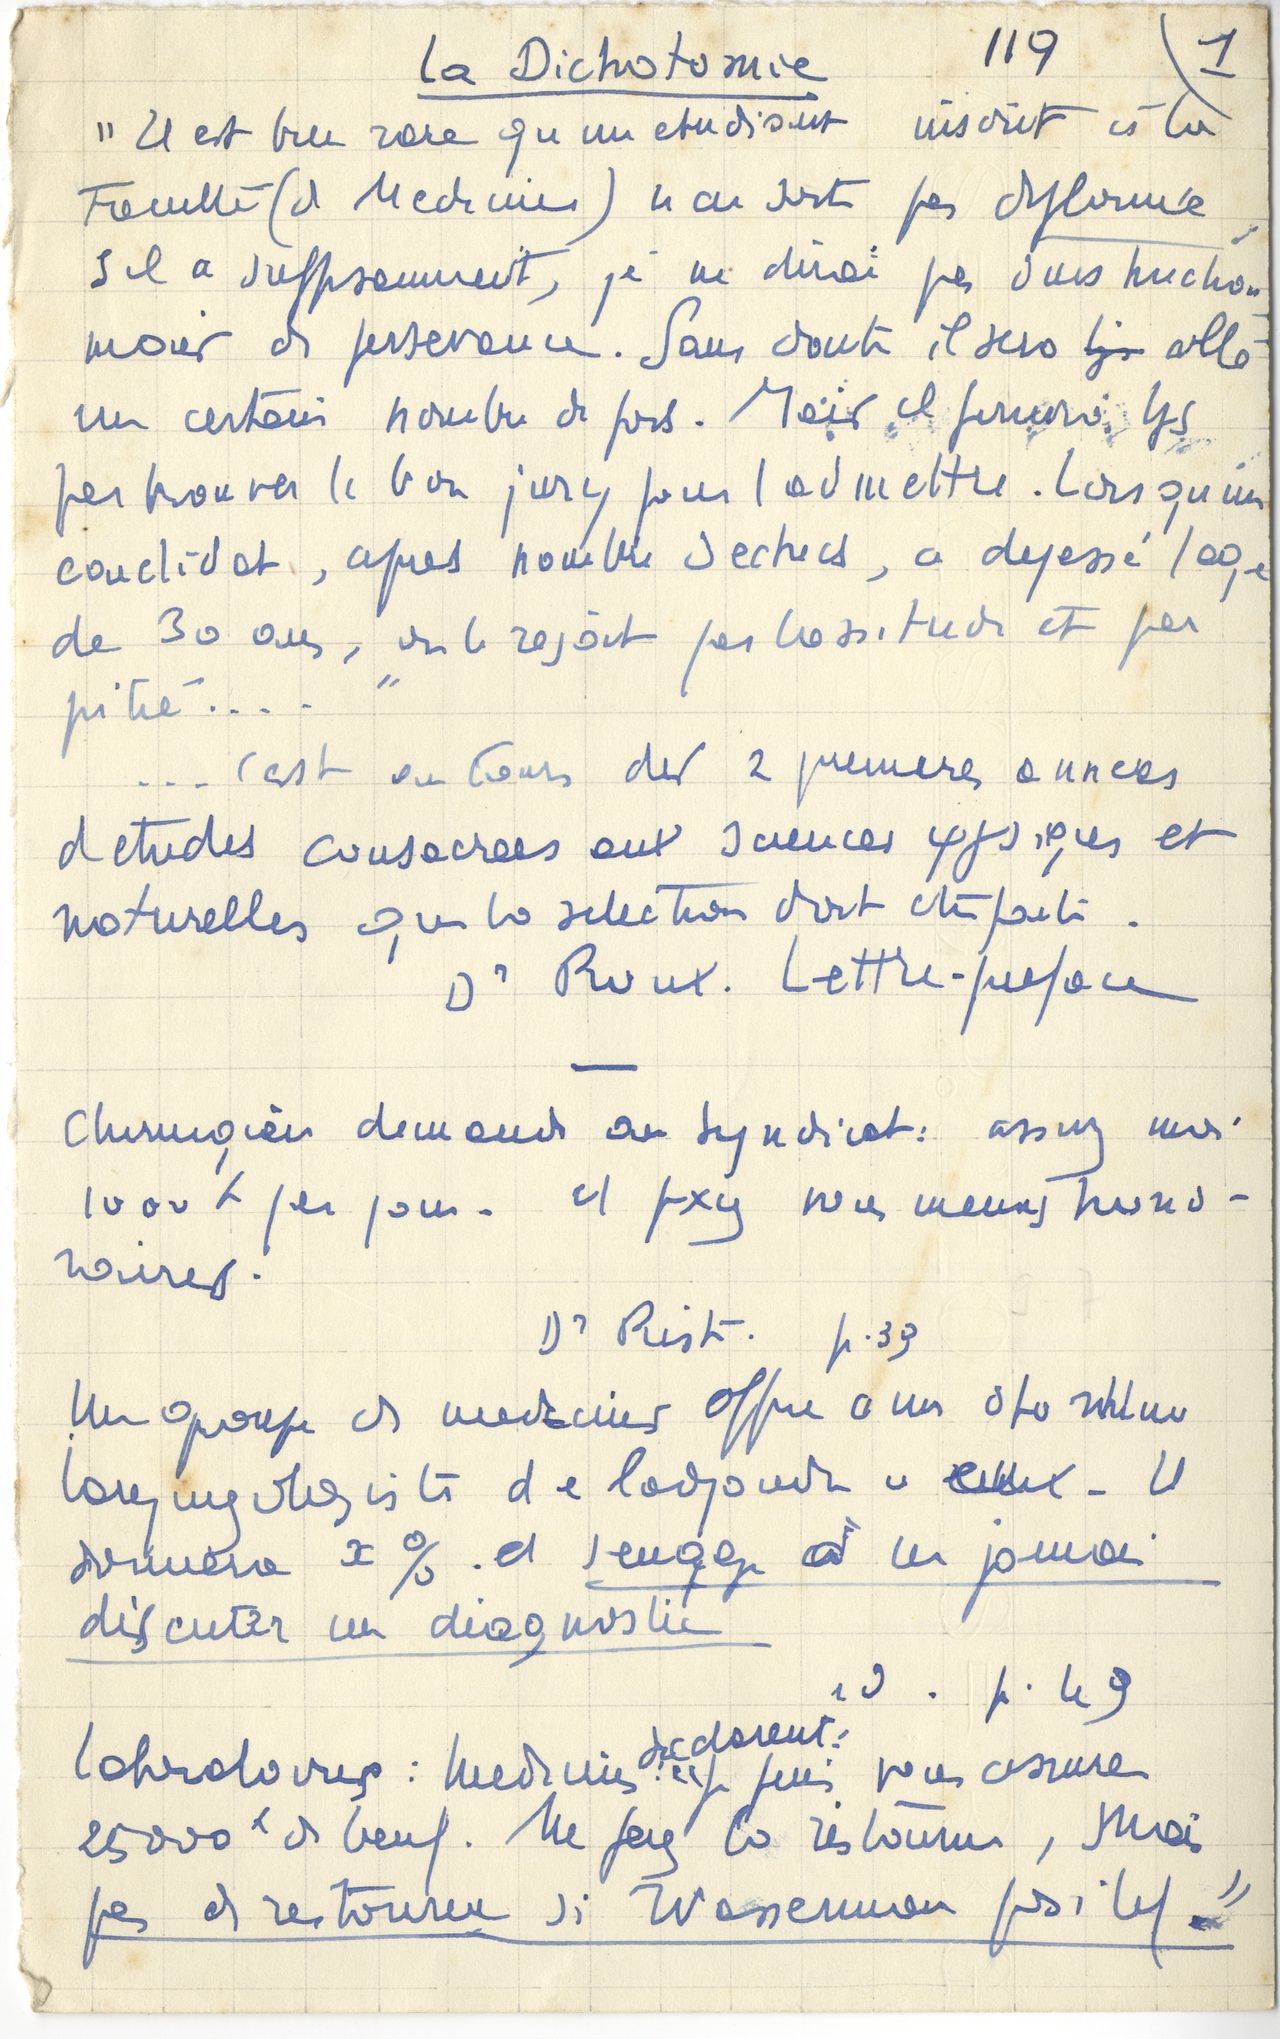 La Dichotomie 119 1
" Il est bien rare qu'un etudiant inscrit à la
Faculté (de Medecine) n'en sorte pas diplomé,
s'il a suffisamment, je ne dirai pas d'instruction
mais de perseverance. Sans doute il sera
un certain nombre de fois. Mais il finira tjs
par trouver le bon jury pour l'admettre. Lorsqu'un
candidat, apres nombre d'echecs, a depassé l'age
de 30 ans, on le reçoit par lassitude et par
pitié.... "
... c'est au cours des 2 premieres annees
d'etudes consacrees aux sciences φysiques et
naturelles que la selection doit etre faite.
Dr Roux. Lettre-preface
—
Chirurgien demande au Syndicat: assurez moi
1000 f par jour. et fixez vous memes hono-
raires.
Dr Rist. p.39
Un groupe de medecins offre a un oto rhino
laryngologiste de l'adjoindre a eux - Il
donnera x %. et s'engage à ne jamais
discuter un diagnostic
id. p. 49
Laboratoires: Medecins declarent: "je puis vous assurer
25000 f de benef. Me faire la ristourne,
pas de ristourne si Wasserman positif."